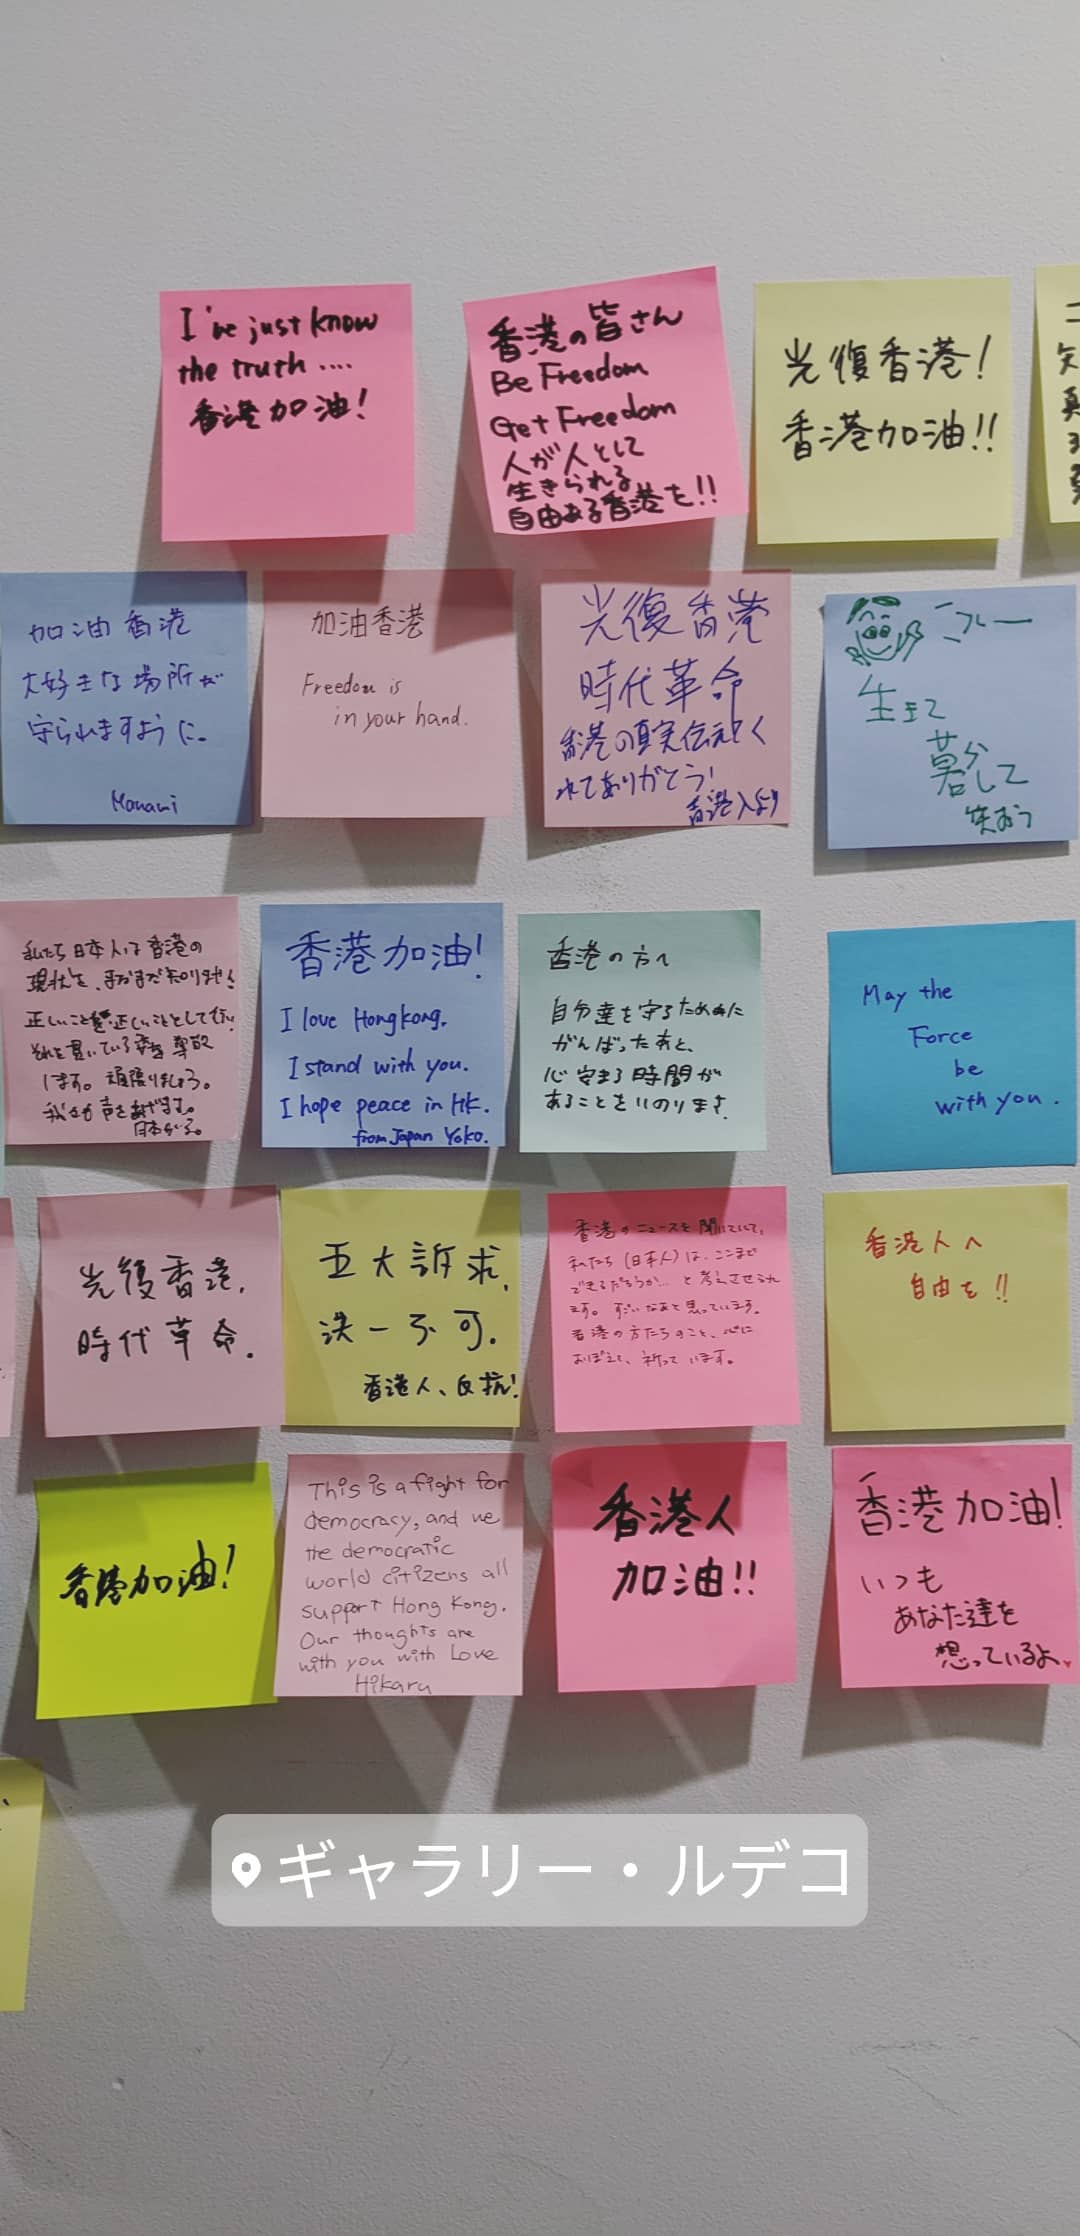 I've just know
the truth ....
香港加油!
香港の皆さん
Be Freedom
Get Freedom
人が人として
生きられる
自由ある香港を!!
光復香港!
香港加油!!
加油香港
大好きな場所が
守られますように。
Manami
加油香港
Freedom is
in your hand.
光復香港
時代革命
香港の真実伝えてく
れてありがとう!
香港人より
フレー
生きて
暮らして
笑おう
私たち日本人は香港の
現状を、まだまだ知りません
正しいことを正しいこととして行い
それを貫いている姿を尊敬
します。頑張りましょう。
我々も声をあげます。
日本から。
香港加油!
I love Hongkong.
I stand with you.
I hope peace in HK.
from Japan Yoko.
香港の方へ
自分達を守るために
がんばったあと、
心安まる時間が
あることをいのります。
May the
Force
be
with you.
光復香港,
時代革命.
五大訴求,
決一不可.
香港人、反抗!
香港のニュースを聞いていて、
私たち(日本人)は、ここまで
できるだろうか... と考えさせられ
ます。すごいなあと思っています。
香港の方たちのこと、心に
おぼえて、祈っています。
香港人へ
自由を!!
香港加油!
This is a fight for
democracy, and we
the democratic
world citizens all
support Hong Kong.
Our thoughts are
with you with Love
Hikaru
香港人
加油!!
香港加油!
いつも
あなた達を
想っているよ
ギャラリー・ルデコ